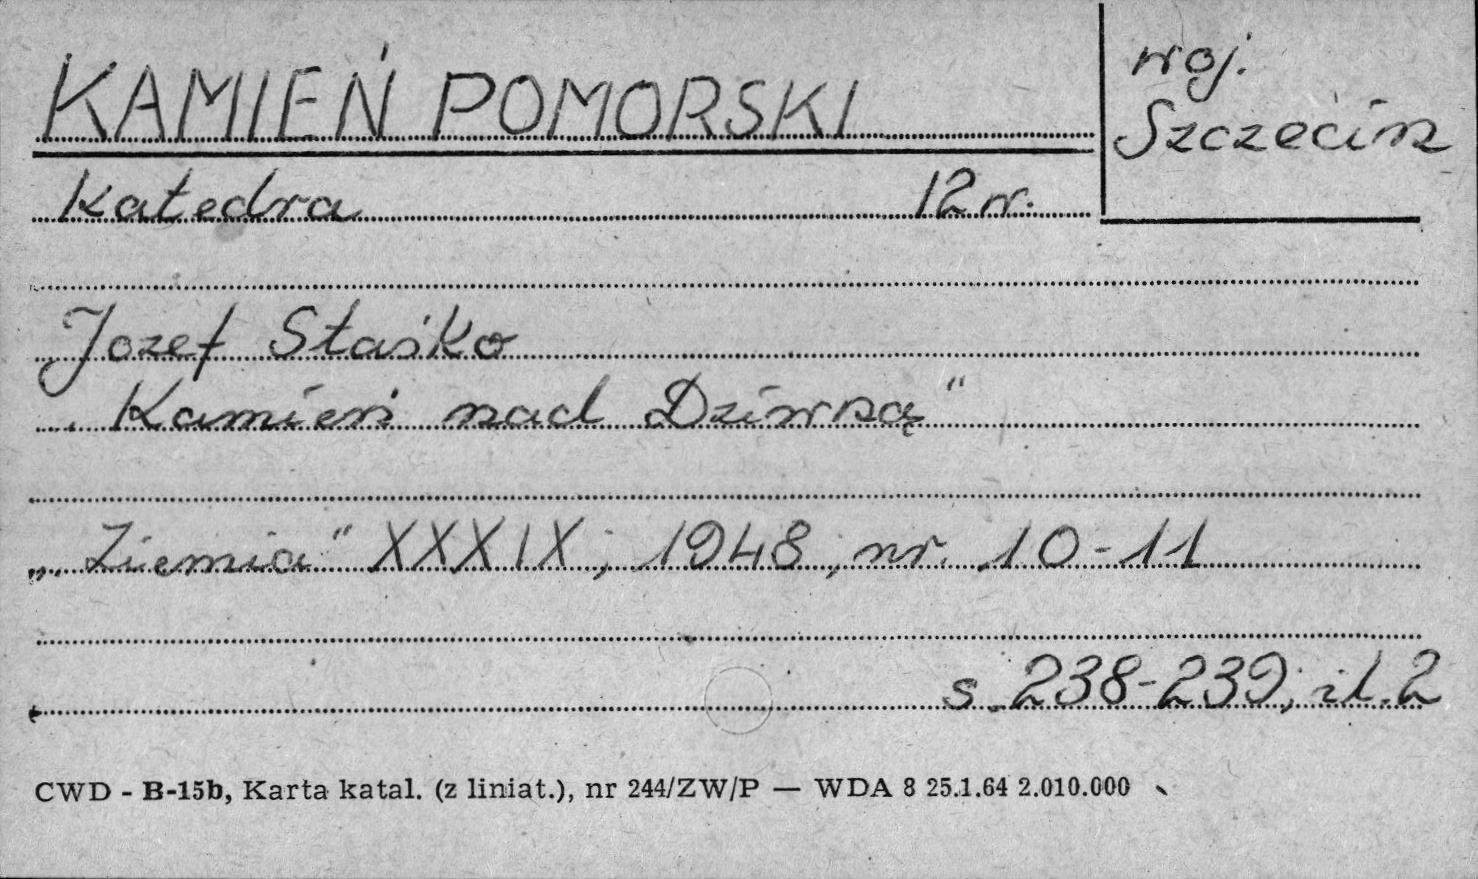 KAMIEŃ POMORSKI
woj.
Szczecin
Katedra 12 w.
Jozef Staśko
„Kamień nad Dziwną”
„Ziemia” XXXIX; 1948; nr. 10-11
s. 238-239; il. 2
CWD - B-15b, Karta katal. (z liniat.), nr 244/ZW/P — WDA 8 25.1.64 2.010.000